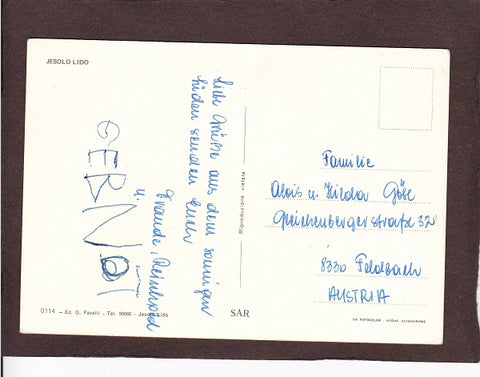 JESOLO LIDO
Liebe Grüße aus dem sonnigen
Süden senden Euch
Traude, Bernhard
u.
GERNOT
Familie
Alois u. Hilda
Gleichenbergerstraße 32
8330 Feldbach
AUSTRIA
0114 - Ed. G. Favelli - Tel. 90666 - Jesolo Lido
SAR
Riproduzione vietata